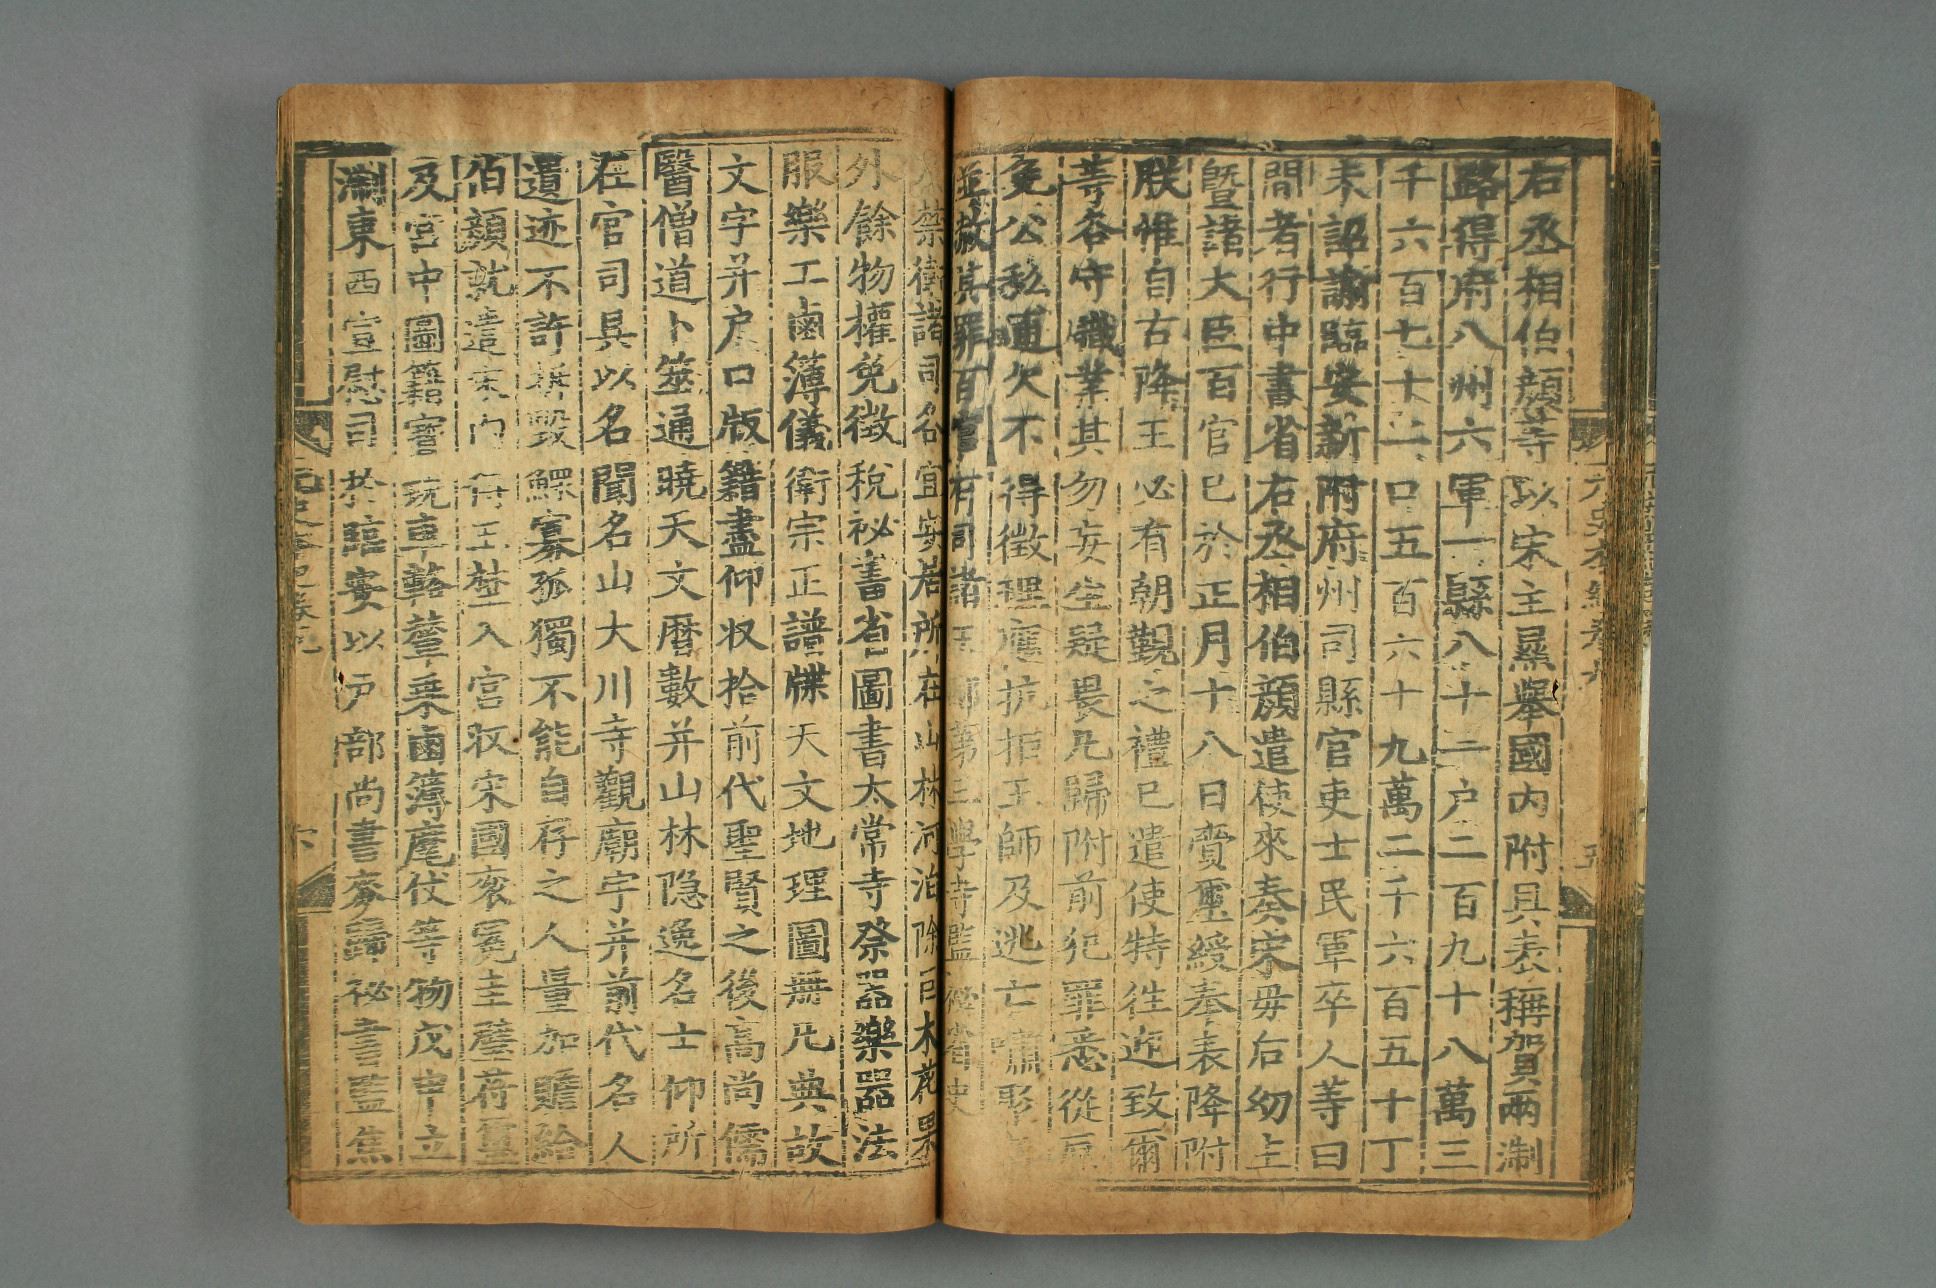 右丞相伯顏等以宋主㬎舉國內附具表稱賀兩淛
路得府八州六軍一縣八十一戶二百九十八萬三
千六百七十二口五百六十九萬二千六百五十丁
未詔諭臨安新附府州司縣官吏士民軍卒人等曰
間者行中書省右丞相伯顏遣使來奏宋母后幼主
暨諸大臣百官已於正月十八日賫璽綬奉表降附
朕惟自古降王必有朝覲之禮已遣使特徃迎致爾
等各守職業其勿妄生疑畏凡歸附前犯罪悉從原
免公私逋欠不得徵理應抗拒王師及逃亡嘯聚者
並赦其罪百官有司諸王邸第三學寺監秘省史
禁衛諸司各宜安居所在山林河泊除巨木花果
外餘物權免徵稅祕書省圖書太常寺祭器樂器法
服樂工鹵簿儀衛宗正譜牒天文地理圖冊凡典故
文字并户口版籍盡仰收拾前代聖賢之後高尚儒
醫僧道卜筮通曉天文曆數并山林隱逸名士仰所
在官司具以名聞名山大川寺觀廟宇并前代名人
遺迹不許拆毀鰥寡孤獨不能自存之人量加贍給
伯顏就遣宋內侍王埜入宮收宋國衮冕圭璧符璽
及宮中圖籍寶玩車輅輦乗鹵簿麾仗等物戊申立
淛東西宣慰司於臨安以户部尚書麥歸祕書監焦
元史本紀卷九
元史本紀卷九